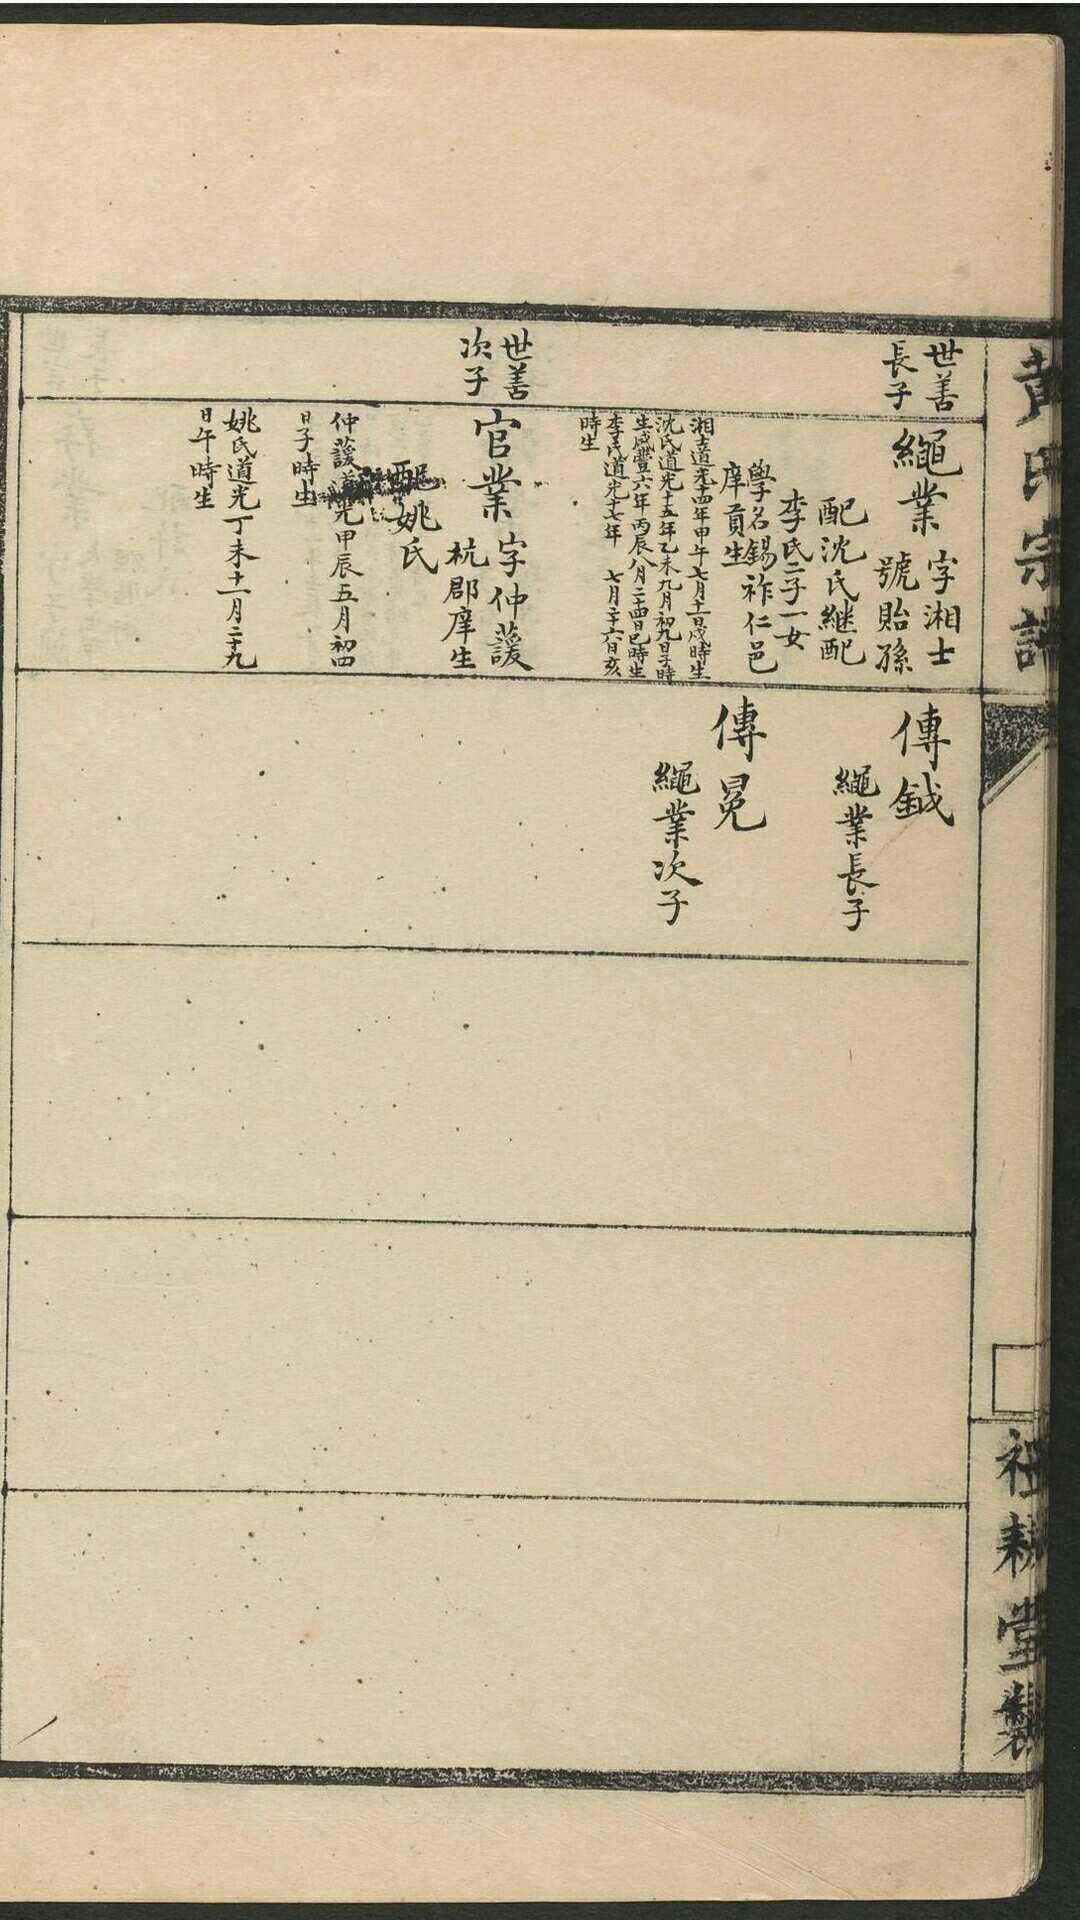 黃氏宗譜
世善
長子
繩業
字湘士
號貽孫
配沈氏継配
李氏二子一女
學名錫祚仁邑
庠貢生
湘士道光十四年甲午七月十一日戌時生
沈氏道光十五年乙未九月初九日子時
生咸豐六年丙辰八月二十四日巳時生
李氏道光十七年 七月二十六日亥
時生
世善
次子
官業
字仲䕶
杭郡庠生
配姚氏
仲䕶道光甲辰五月初四
日子時生
姚氏道光丁未十一月二十九
日午時生
傳鉞
繩業長子
傳冕
繩業次子
祖耕堂製